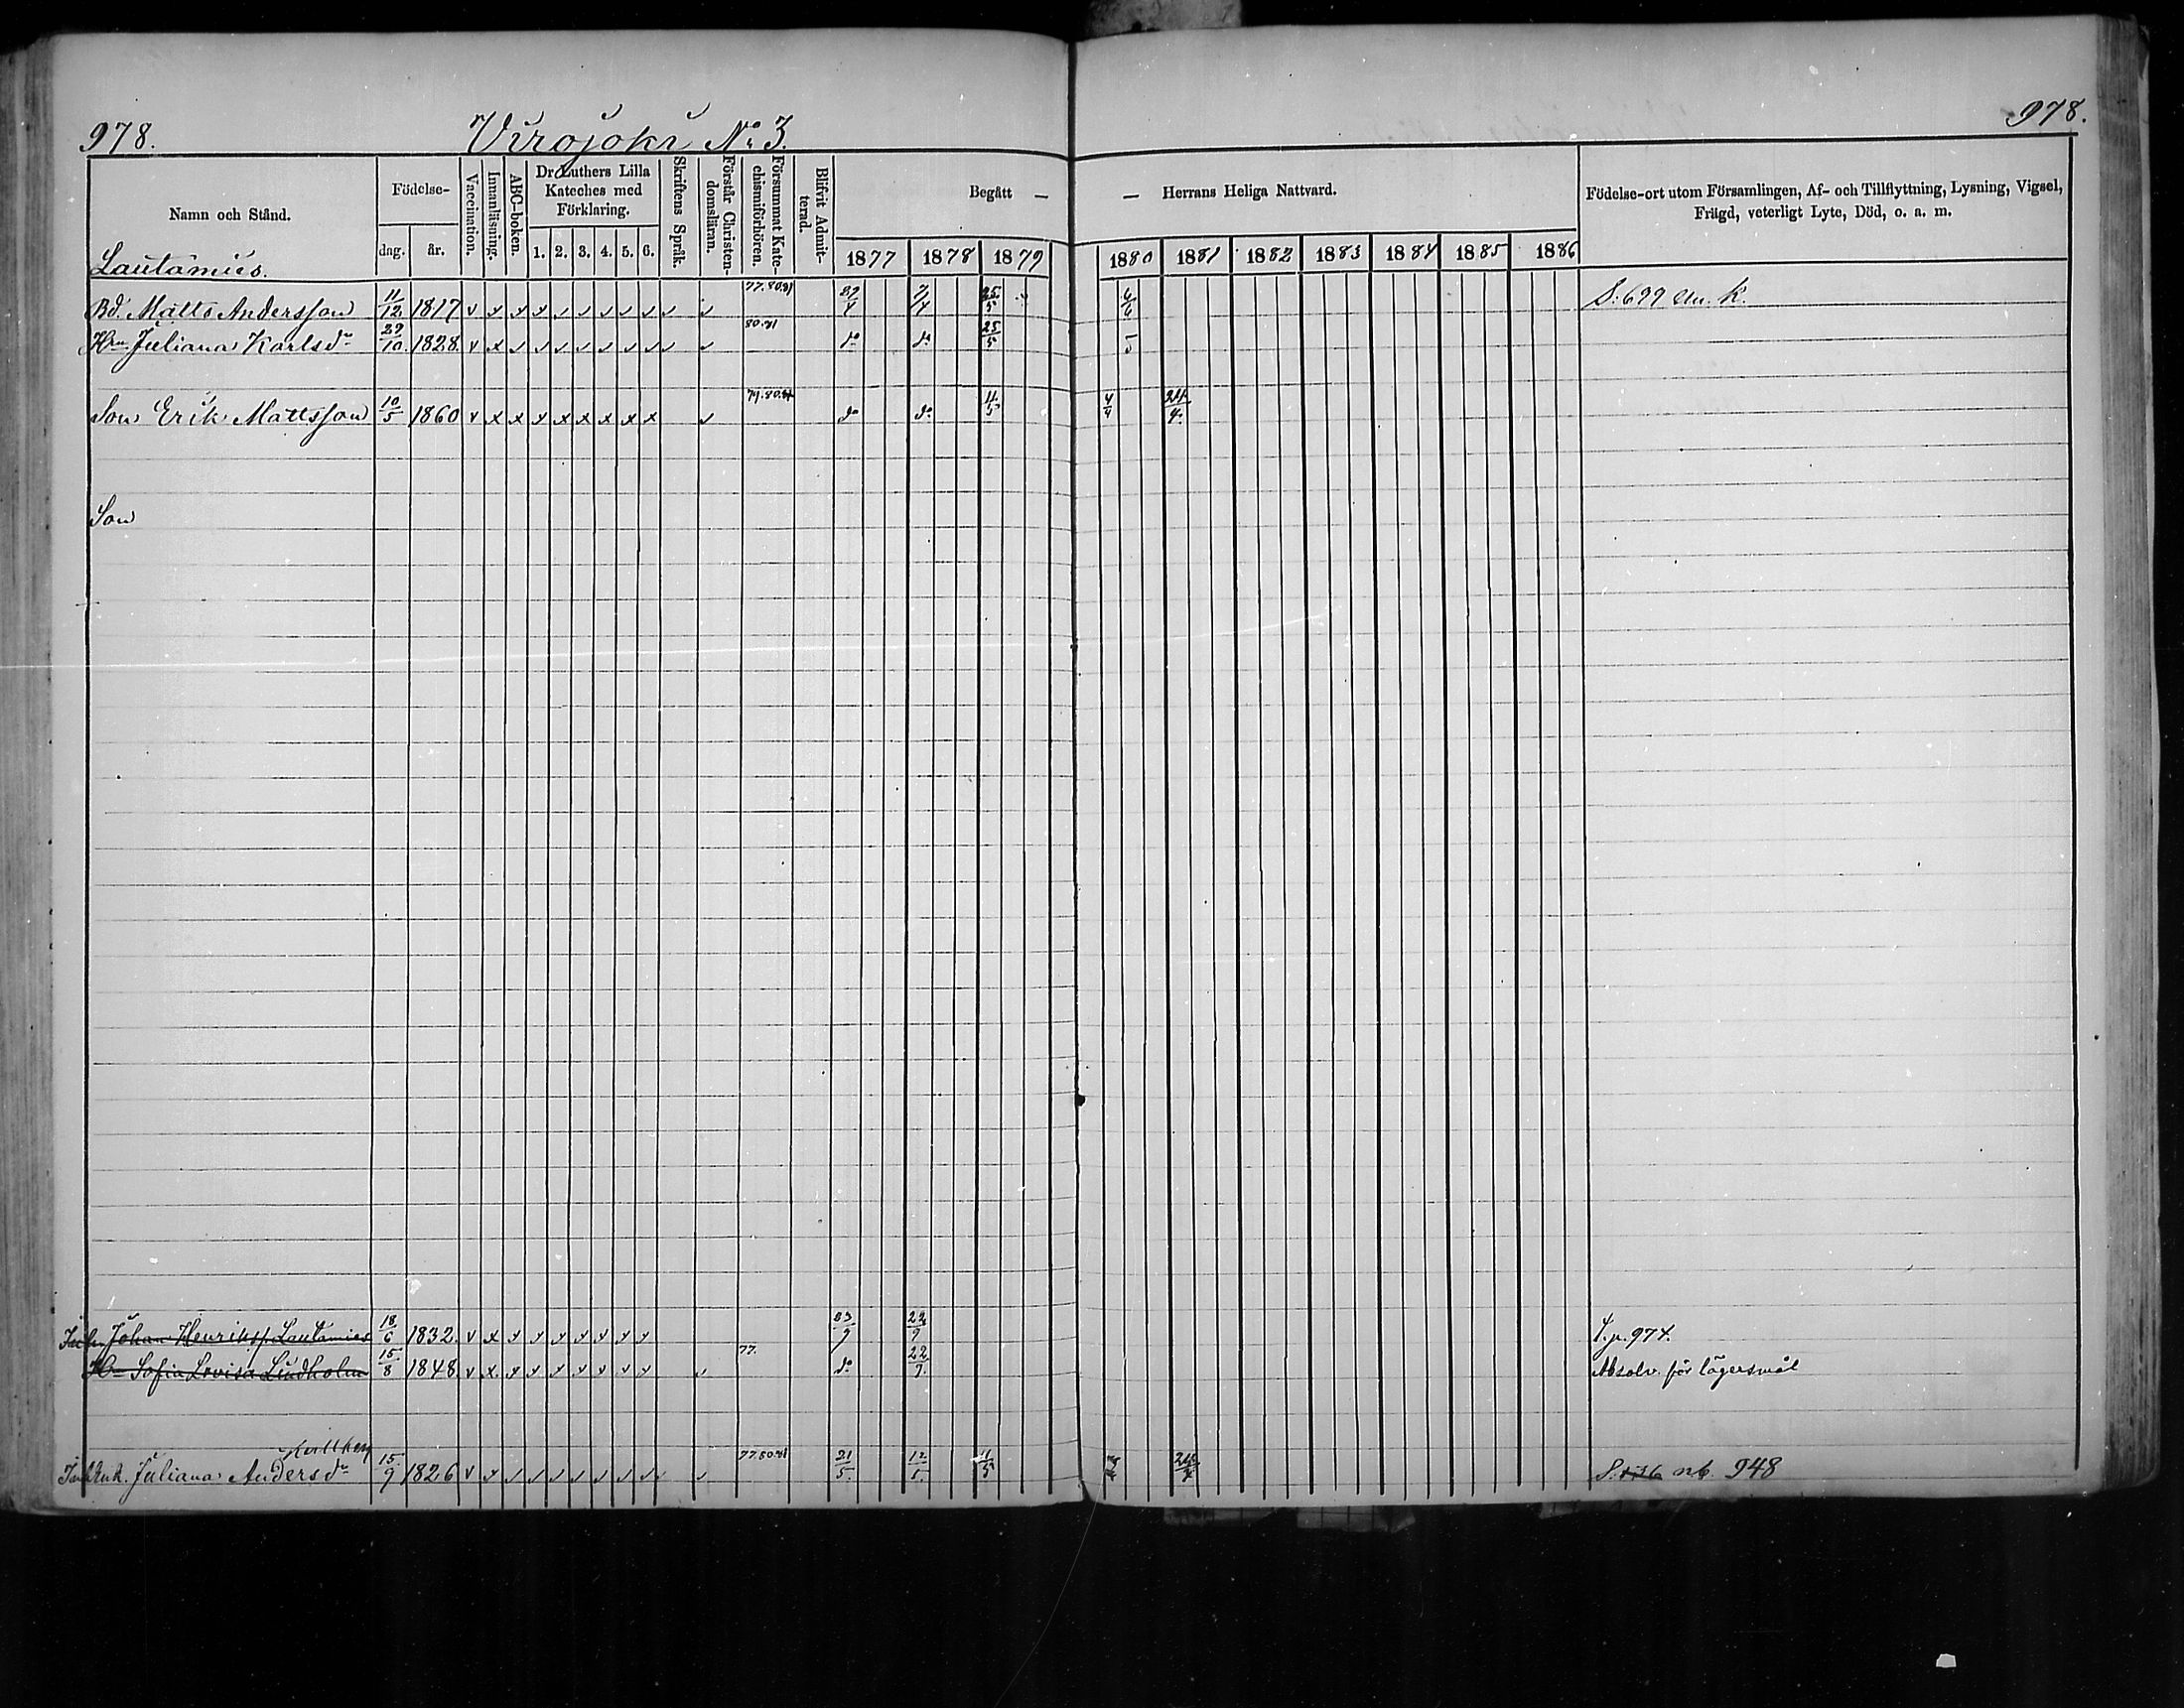 978. Virojoki No 3. 978.
Namn och Stånd. Födelse- dag. år. Vaccination. Innanläsning. ABC-boken. Dr Luthers Lilla Kateches med Förklaring. 1. 2. 3. 4. 5. 6. Skriftens Språk. Förstår Christendomsläran. Försummat Katechismiförhören. Blifvit Admitterad. Begått — — Herrans Heliga Nattvard. Födelse-ort utom Församlingen, Af- och Tillflyttning, Lysning, Vigsel, Frägd, veterligt Lyte, Död, o. a. m.
1877 1878 1879 1880 1881 1882 1883 1884 1885 1886
Lautamies.
Bd. Matts Andersson 11/12 1817 v 77.80.81 7/4 25/5 S: 699
Hru Juliana Karlsdr 29/10 1828. v 80.81 do do 25/5
Son Erik Mattsson 10/5 1860 v x x x x x x x x do do 11/5 4/4 24/4
Son
Johan Henrikss. Lautamies 18/6 1832. v x 22/7 S. p. 974.
Hu Sofia Lovisa Lindholm 15/8 1848 v x 77. do 22/7 Absolv. för lägersmål
Juliana Andersdr 15/9 1826 v 77.80.81 21/5 11/5 24/4 948